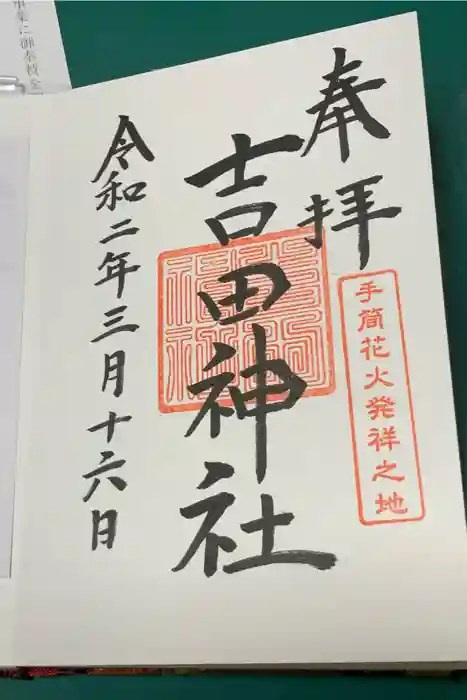 奉拝
手筒花火発祥之地
吉田神社
令和二年三月十六日